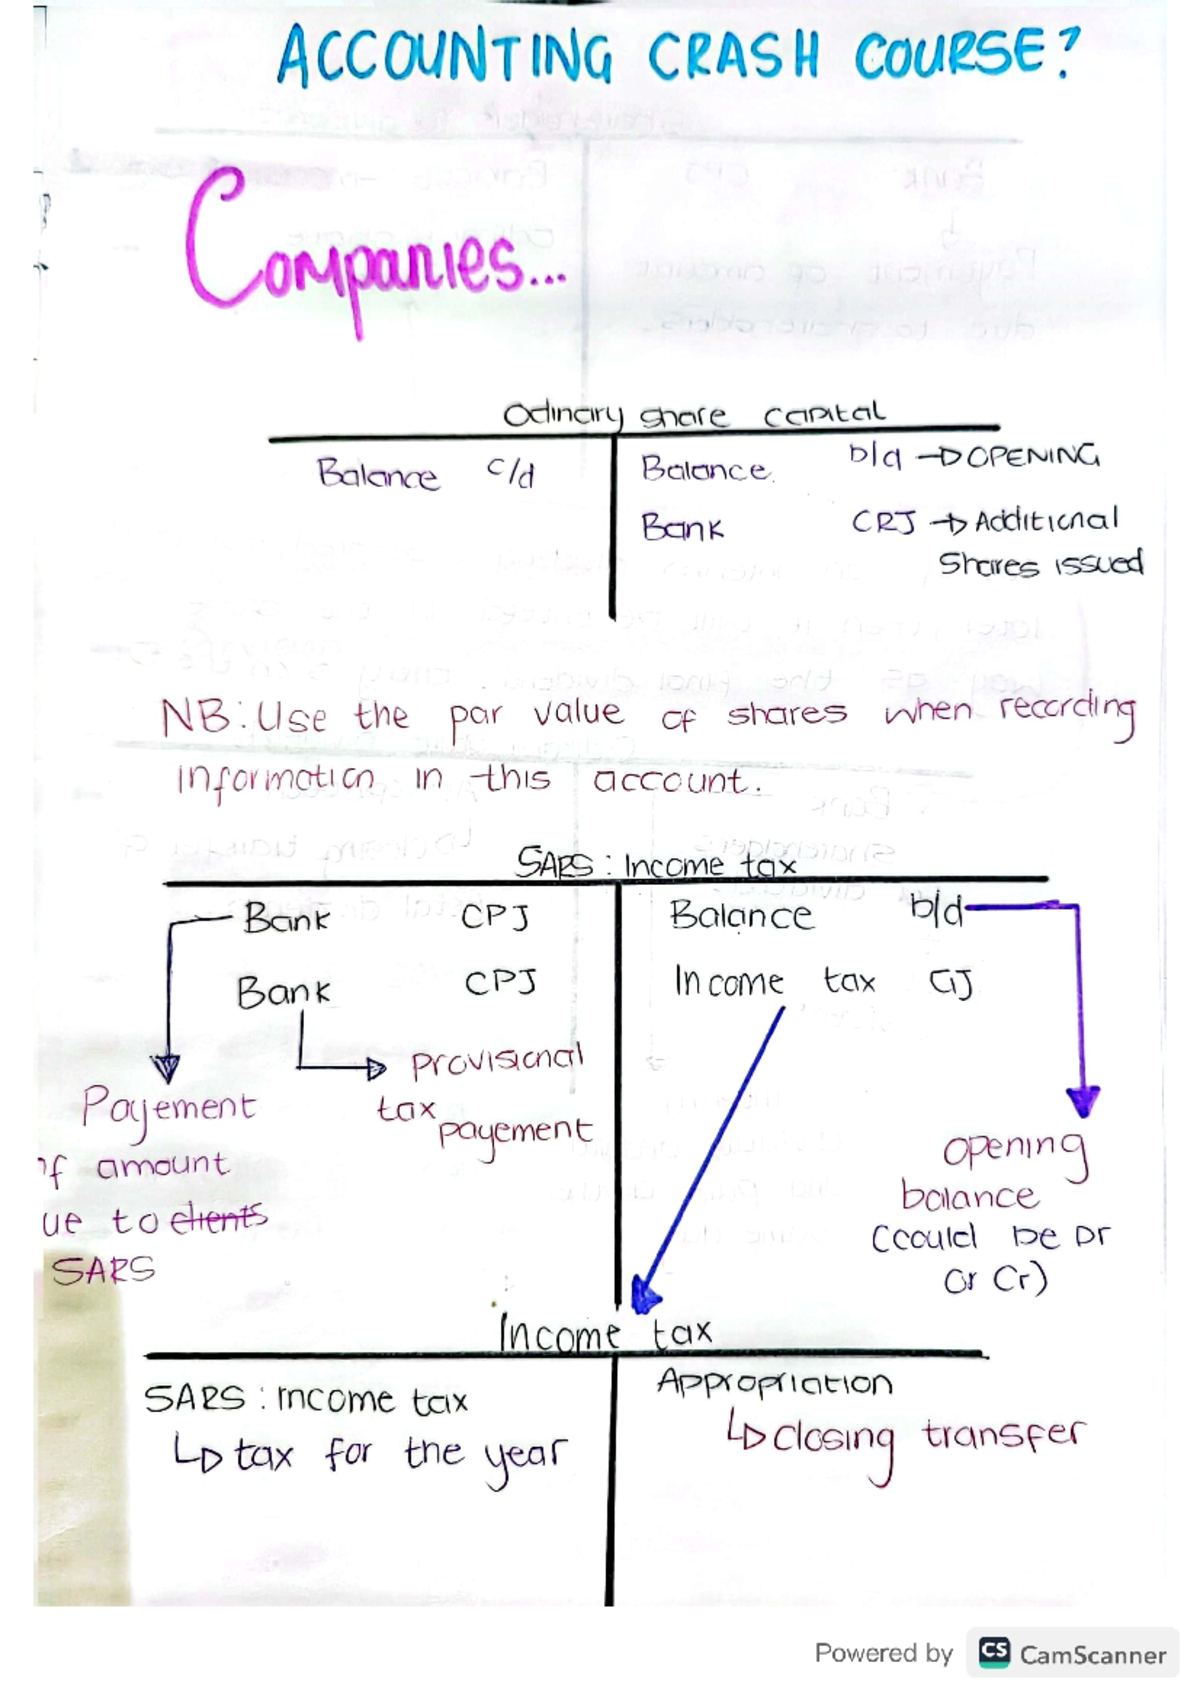 ACCOUNTING CRASH COURSE?
Companies...
Odinary share capital
Balance c/d Balance b/d → OPENING
Bank CRJ → Additional
Shares issued
NB: Use the par value of shares when recording
information in this account.
SARS : Income tax
Bank CPJ Balance b/d
Bank CPJ Income tax GJ
Provisional
tax
payement
Payement
of amount
ue to clients
SARS
opening
balance
(could be Dr
or Cr)
Income tax
SARS : Income tax Appropriation
↳ tax for the year ↳ closing transfer
Powered by CS CamScanner